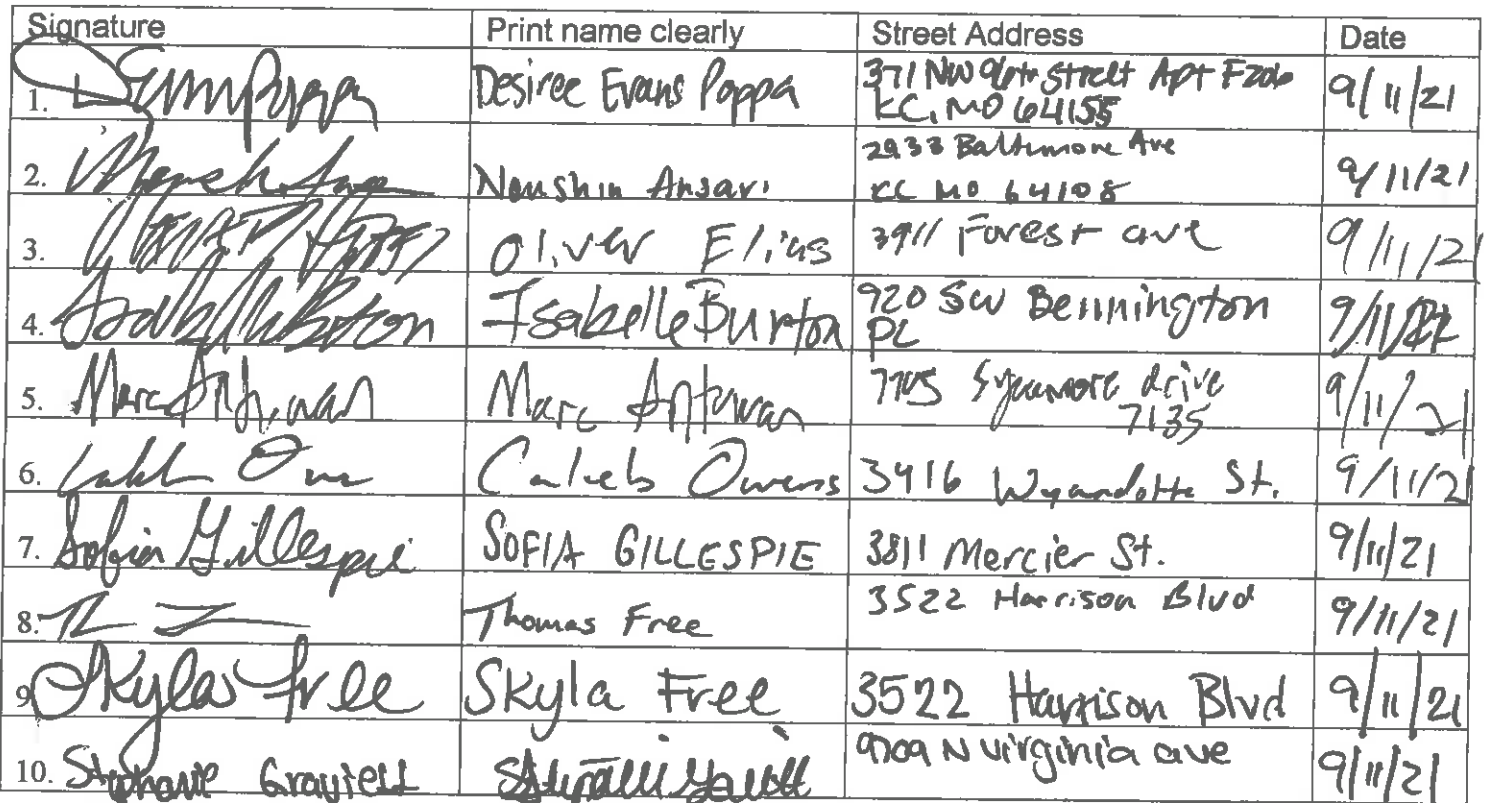 Signature Print name clearly Street Address Date
1. Desiree Evans Poppa 371 NW 96th Street Apt F206 9/11/21
KC, MO 64155
2. Noushin Ansari 2933 Baltimore Ave 9/11/21
KC MO 64108
3. Oliver Elias 3911 Forest ave 9/11/21
4. Isabelle Burton 920 SW Bennington 9/11/21
PL
5. Marc Antowan 7705 Sycamore drive 9/11/21
7135
6. Caleb Owens 3416 Wyandotte St. 9/11/21
7. Sofia Gillespie SOFIA GILLESPIE 3811 Mercier St. 9/11/21
8. Thomas Free 3522 Harrison Blvd 9/11/21
9 Skyla Free Skyla Free 3522 Harrison Blvd 9/11/21
10. Stephanie N Virginia ave 9/11/21